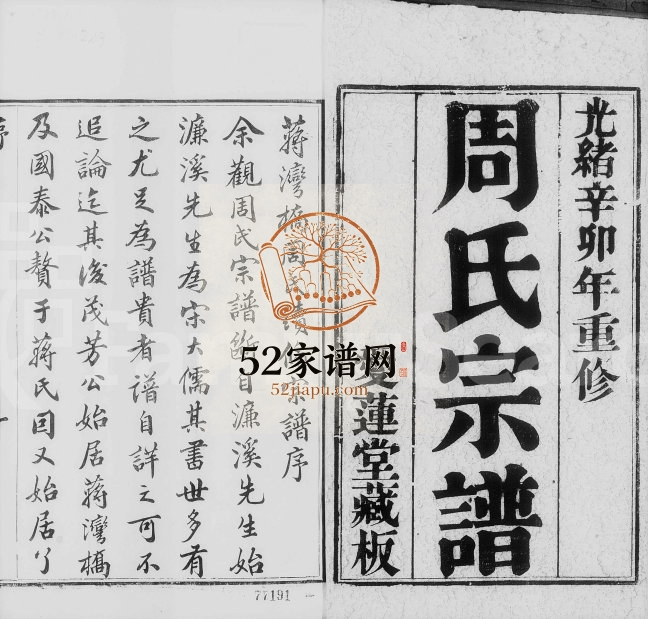 光緒辛卯年重修
周氏宗譜
愛蓮堂藏板
蔣灣橋周氏續修宗譜序
余觀周氏宗譜斷自濂溪先生始
濂溪先生為宋大儒其書世多有
之尤足為譜貴者譜自詳之可不
追論迄其後茂芳公始居蔣灣橋
及國泰公贅于蔣氏因又始居丫
序
52家谱网
52jiapu.com
77191